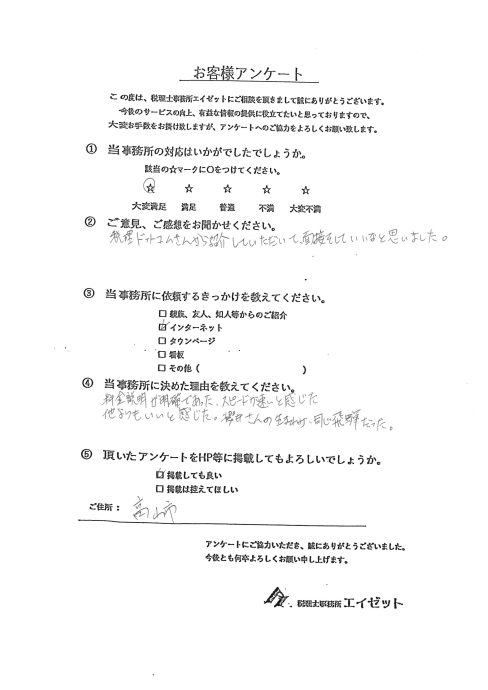 お客様アンケート
この度は、税理士事務所エイゼットにご相談を頂きまして誠にありがとうございます。
今後のサービスの向上、有益な情報の提供に役立てたいと思っておりますので、
大変お手数をお掛け致しますが、アンケートへのご協力をよろしくお願い致します。
① 当事務所の対応はいかがでしたでしょうか。
該当の☆マークに〇をつけてください。
☆ ☆ ☆ ☆ ☆
大変満足 満足 普通 不満 大変不満
② ご意見、ご感想をお聞かせください。
税理ドットコムさんから紹介していただいて、面接をしていいなと思いました。
③ 当事務所に依頼するきっかけを教えてください。
□ 親族、友人、知人等からのご紹介
☑ インターネット
□ タウンページ
□ 看板
□ その他 ( )
④ 当事務所に決めた理由を教えてください。
料金説明が明確であった、スピードが速いと感じた
他よりもいいと感じた。さんの生まれが、同じ飛騨だった。
⑤ 頂いたアンケートをHP等に掲載してもよろしいでしょうか。
☑ 掲載しても良い
□ 掲載は控えてほしい
ご住所: 高山市
アンケートにご協力いただき、誠にありがとうございました。
今後とも何卒よろしくお願い申し上げます。
税理士事務所 エイゼット